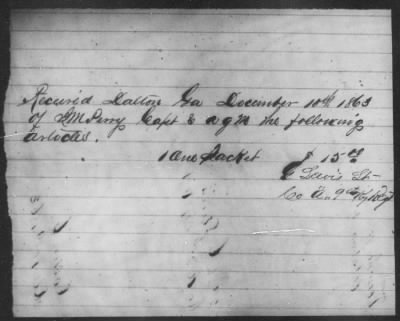 Received Dalton Ga December 10th 1863
of J M Perry Capt & aqm the following
articles.
1 One Jacket $ 15.00
Davis Lt
Co 9th Ky Regt